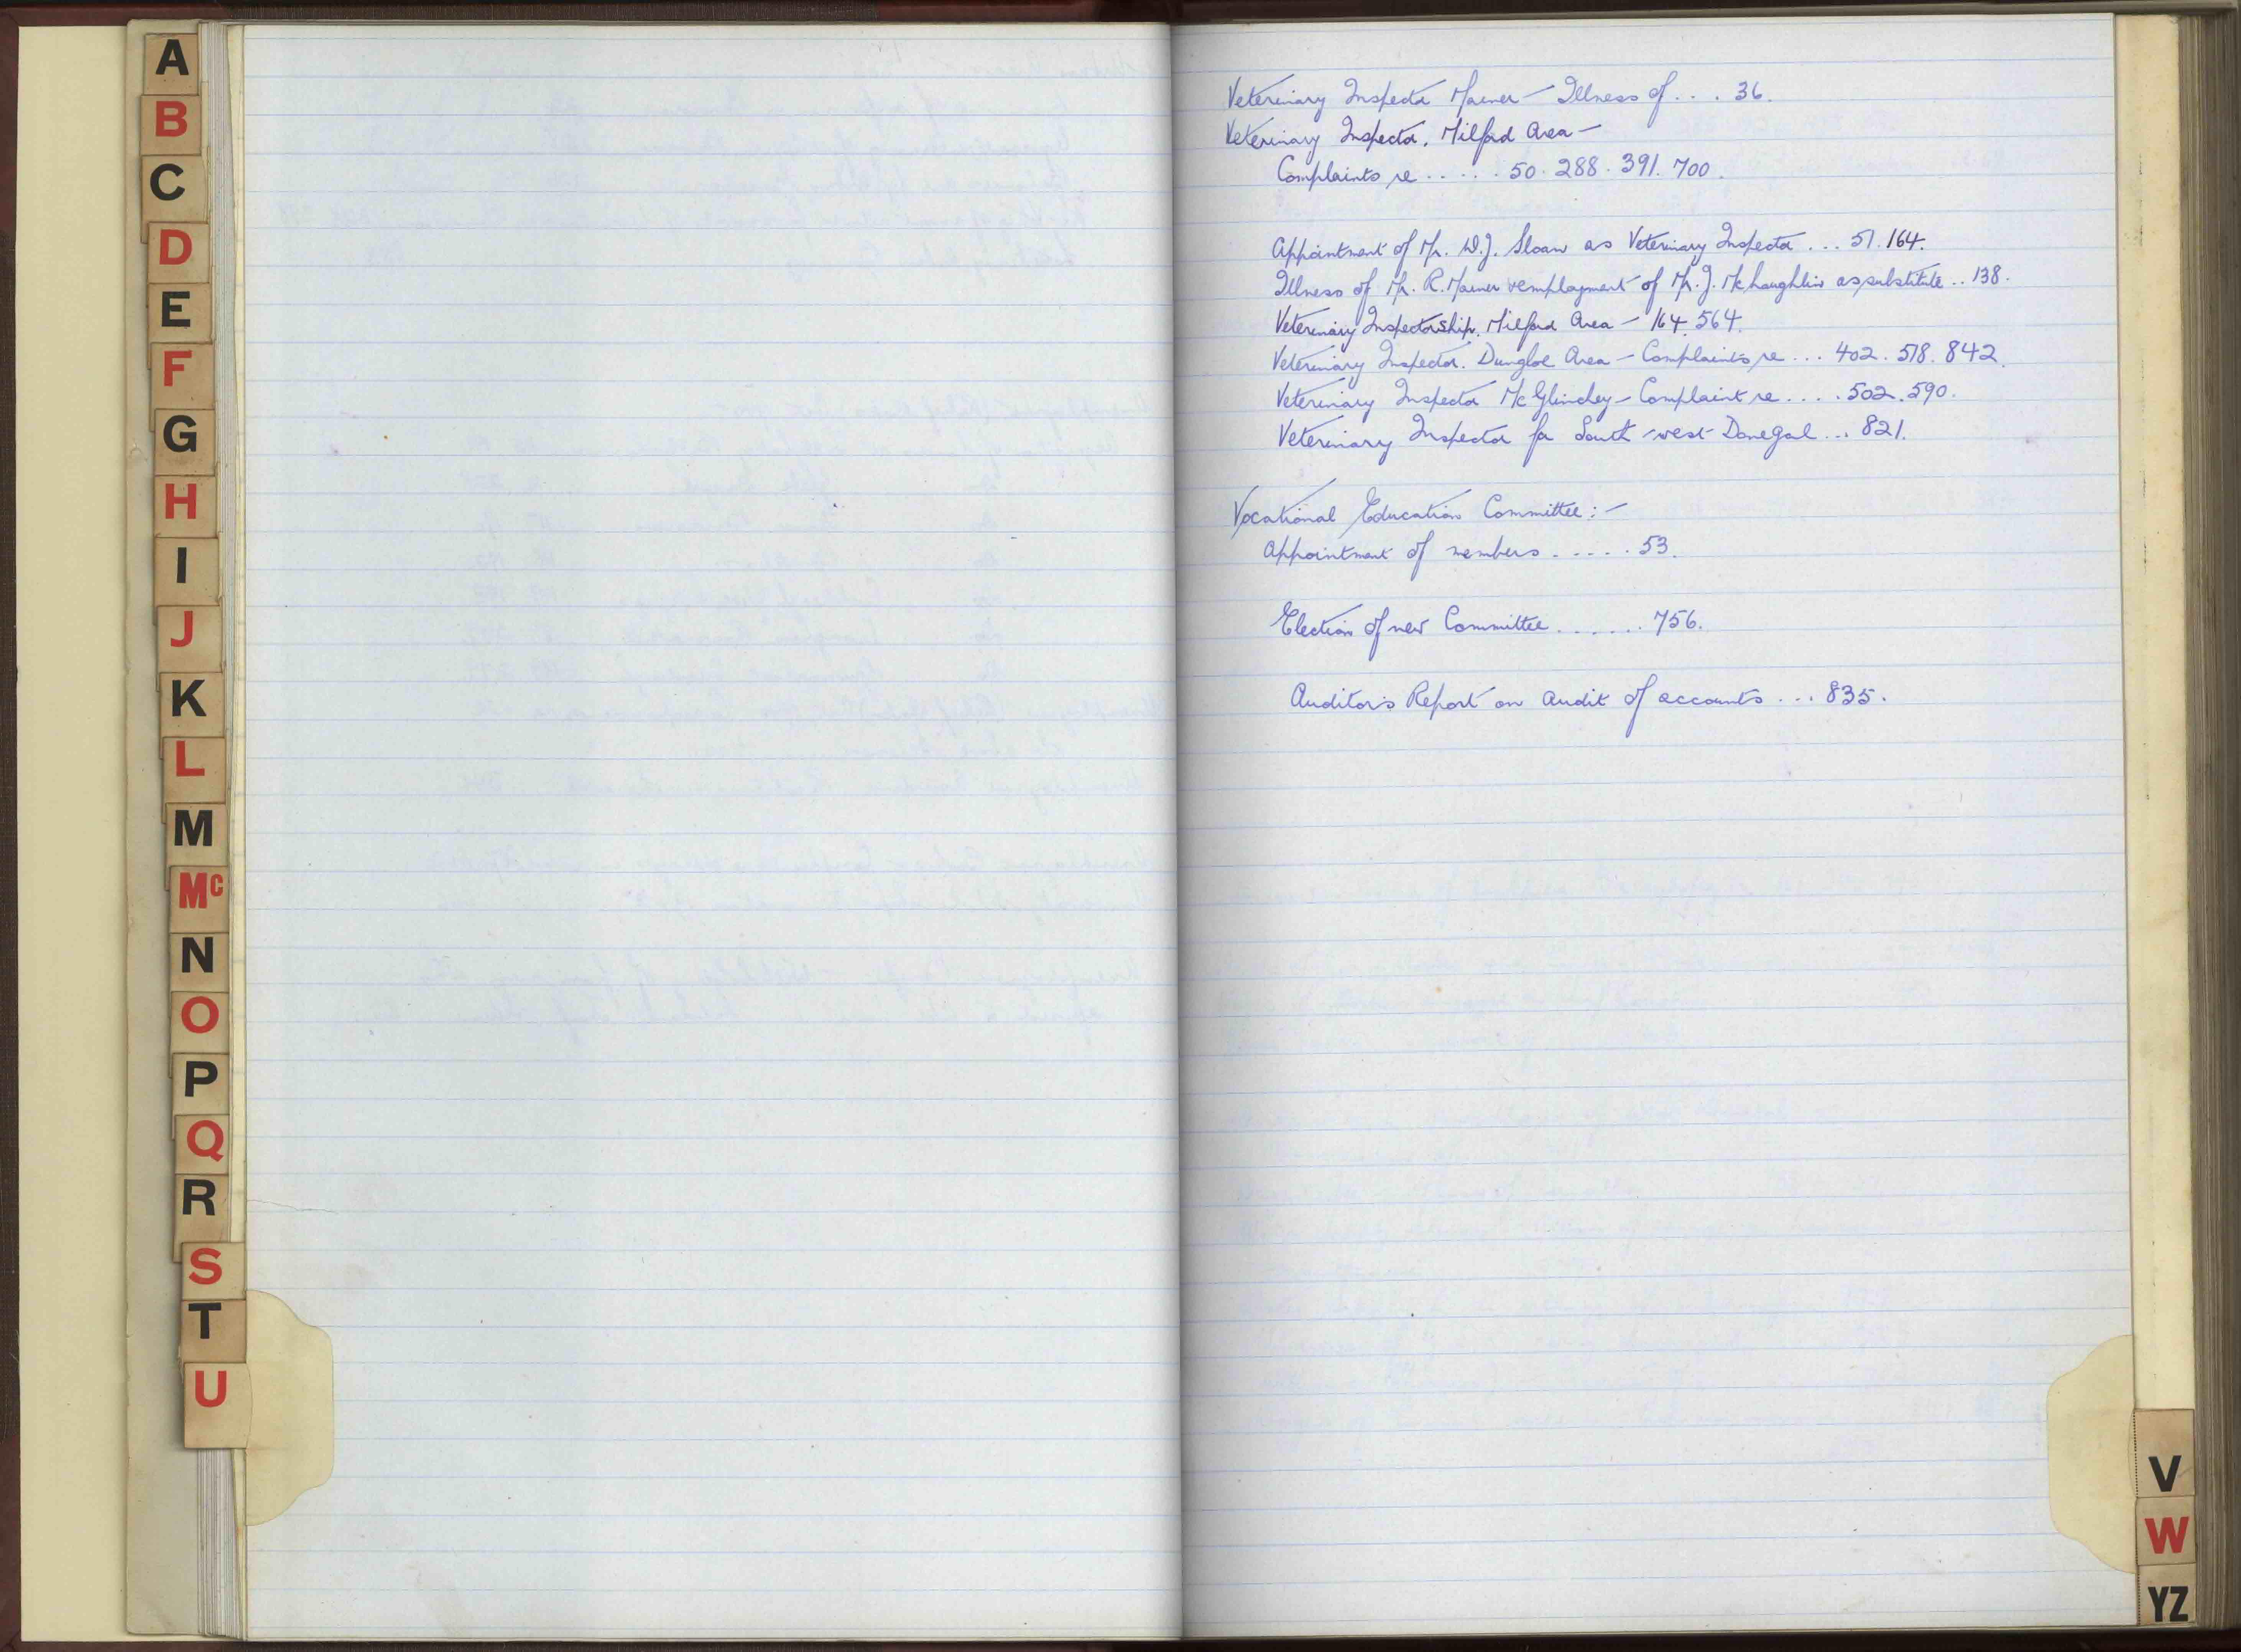 A
B
C
D
E
F
G
H
I
J
K
L
M
Mc
N
O
P
Q
R
S
T
U
Veterinary Inspector – Illness of . . . 36.
Veterinary Inspector. Milford Area –
Complaints re . . . . . 50. 288. 391. 700.
Appointment of Mr. W.J. Sloan as Veterinary Inspector ... 51. 164.
Illness of Mr. R. & employment of Mr. J. McLaughlin as substitute .. 138.
Veterinary Inspectorship. Milford Area – 164. 564.
Veterinary Inspector. Dungloe Area – Complaints re ... 402. 518. 842.
Veterinary Inspector McGlinchey – Complaint re . . . . 502. 590.
Veterinary Inspector for South-west Donegal ... 821.
Vocational Education Committee :–
Appointment of members . . . . . 53.
Election of new Committee . . . . . . 756.
Auditor's Report on Audit of accounts ... 835.
V
W
YZ